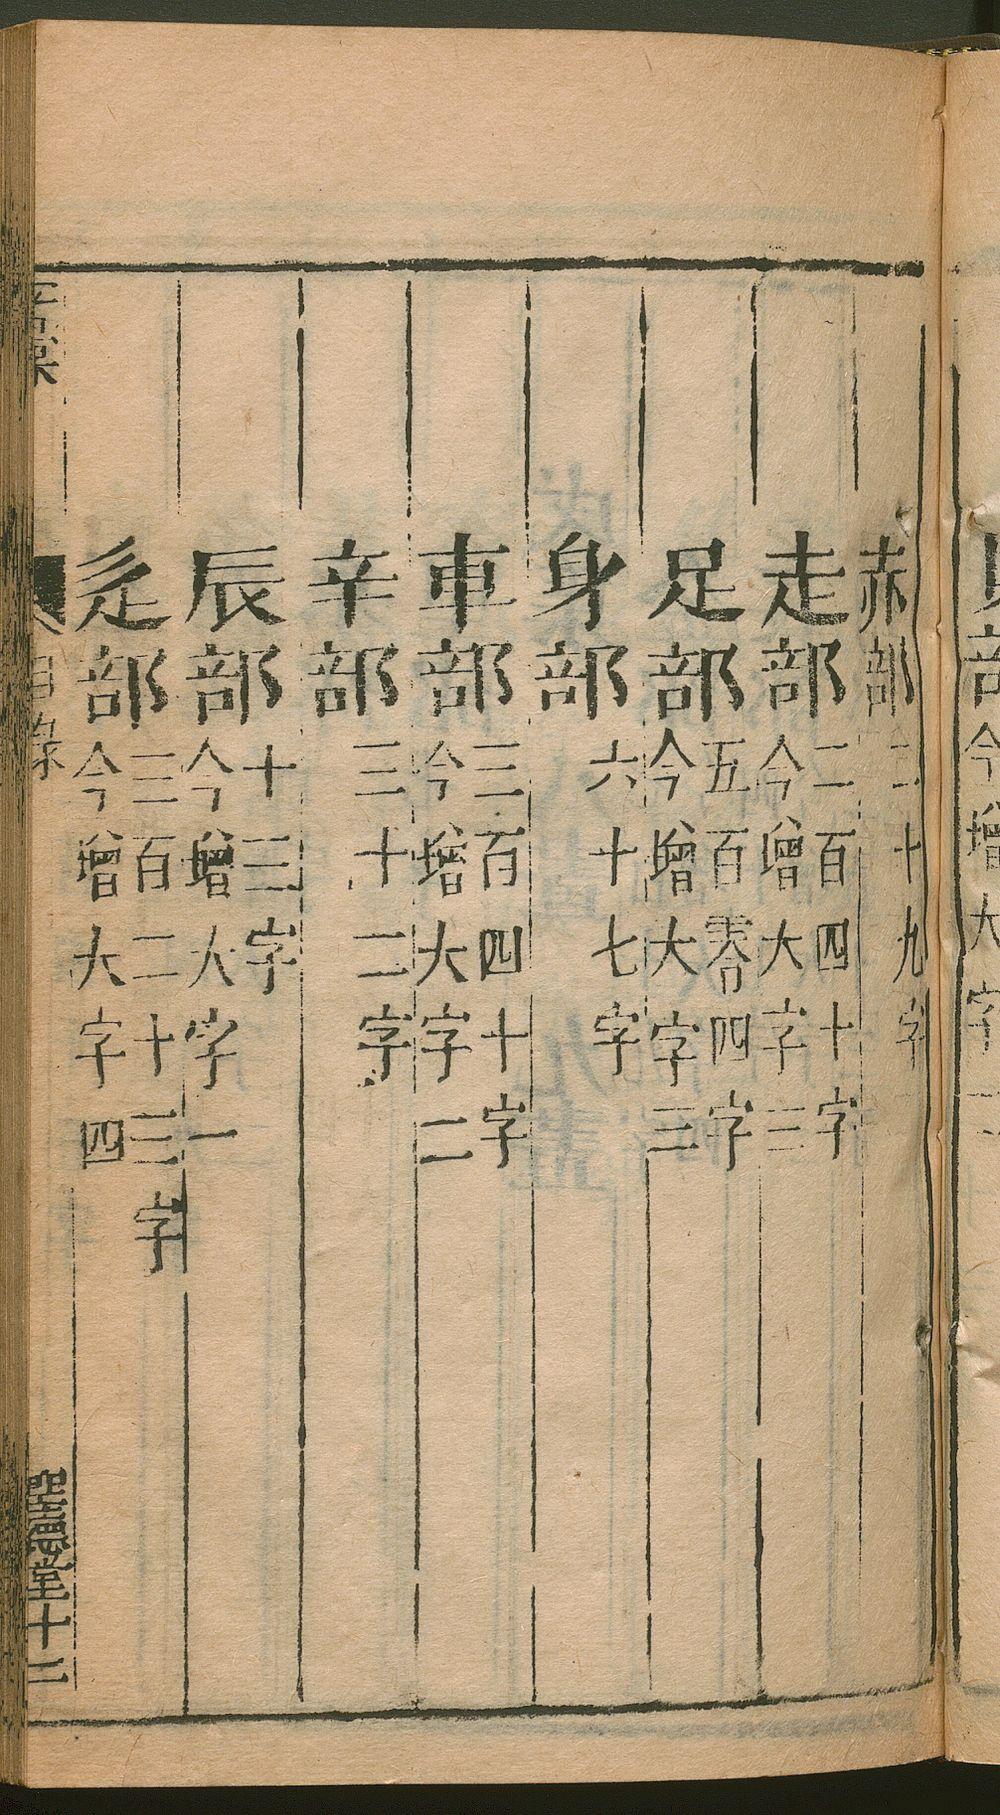 部今增大字
赤部二十九字
走部二百四十字
今增大字三
足部五百零四字
今增大字三
身部六十七字
車部三百四十字
今增大字二
辛部三十二字
辰部十三字
今增大字一
辵部三百二十三字
今增大字四
字彙
目錄
十二